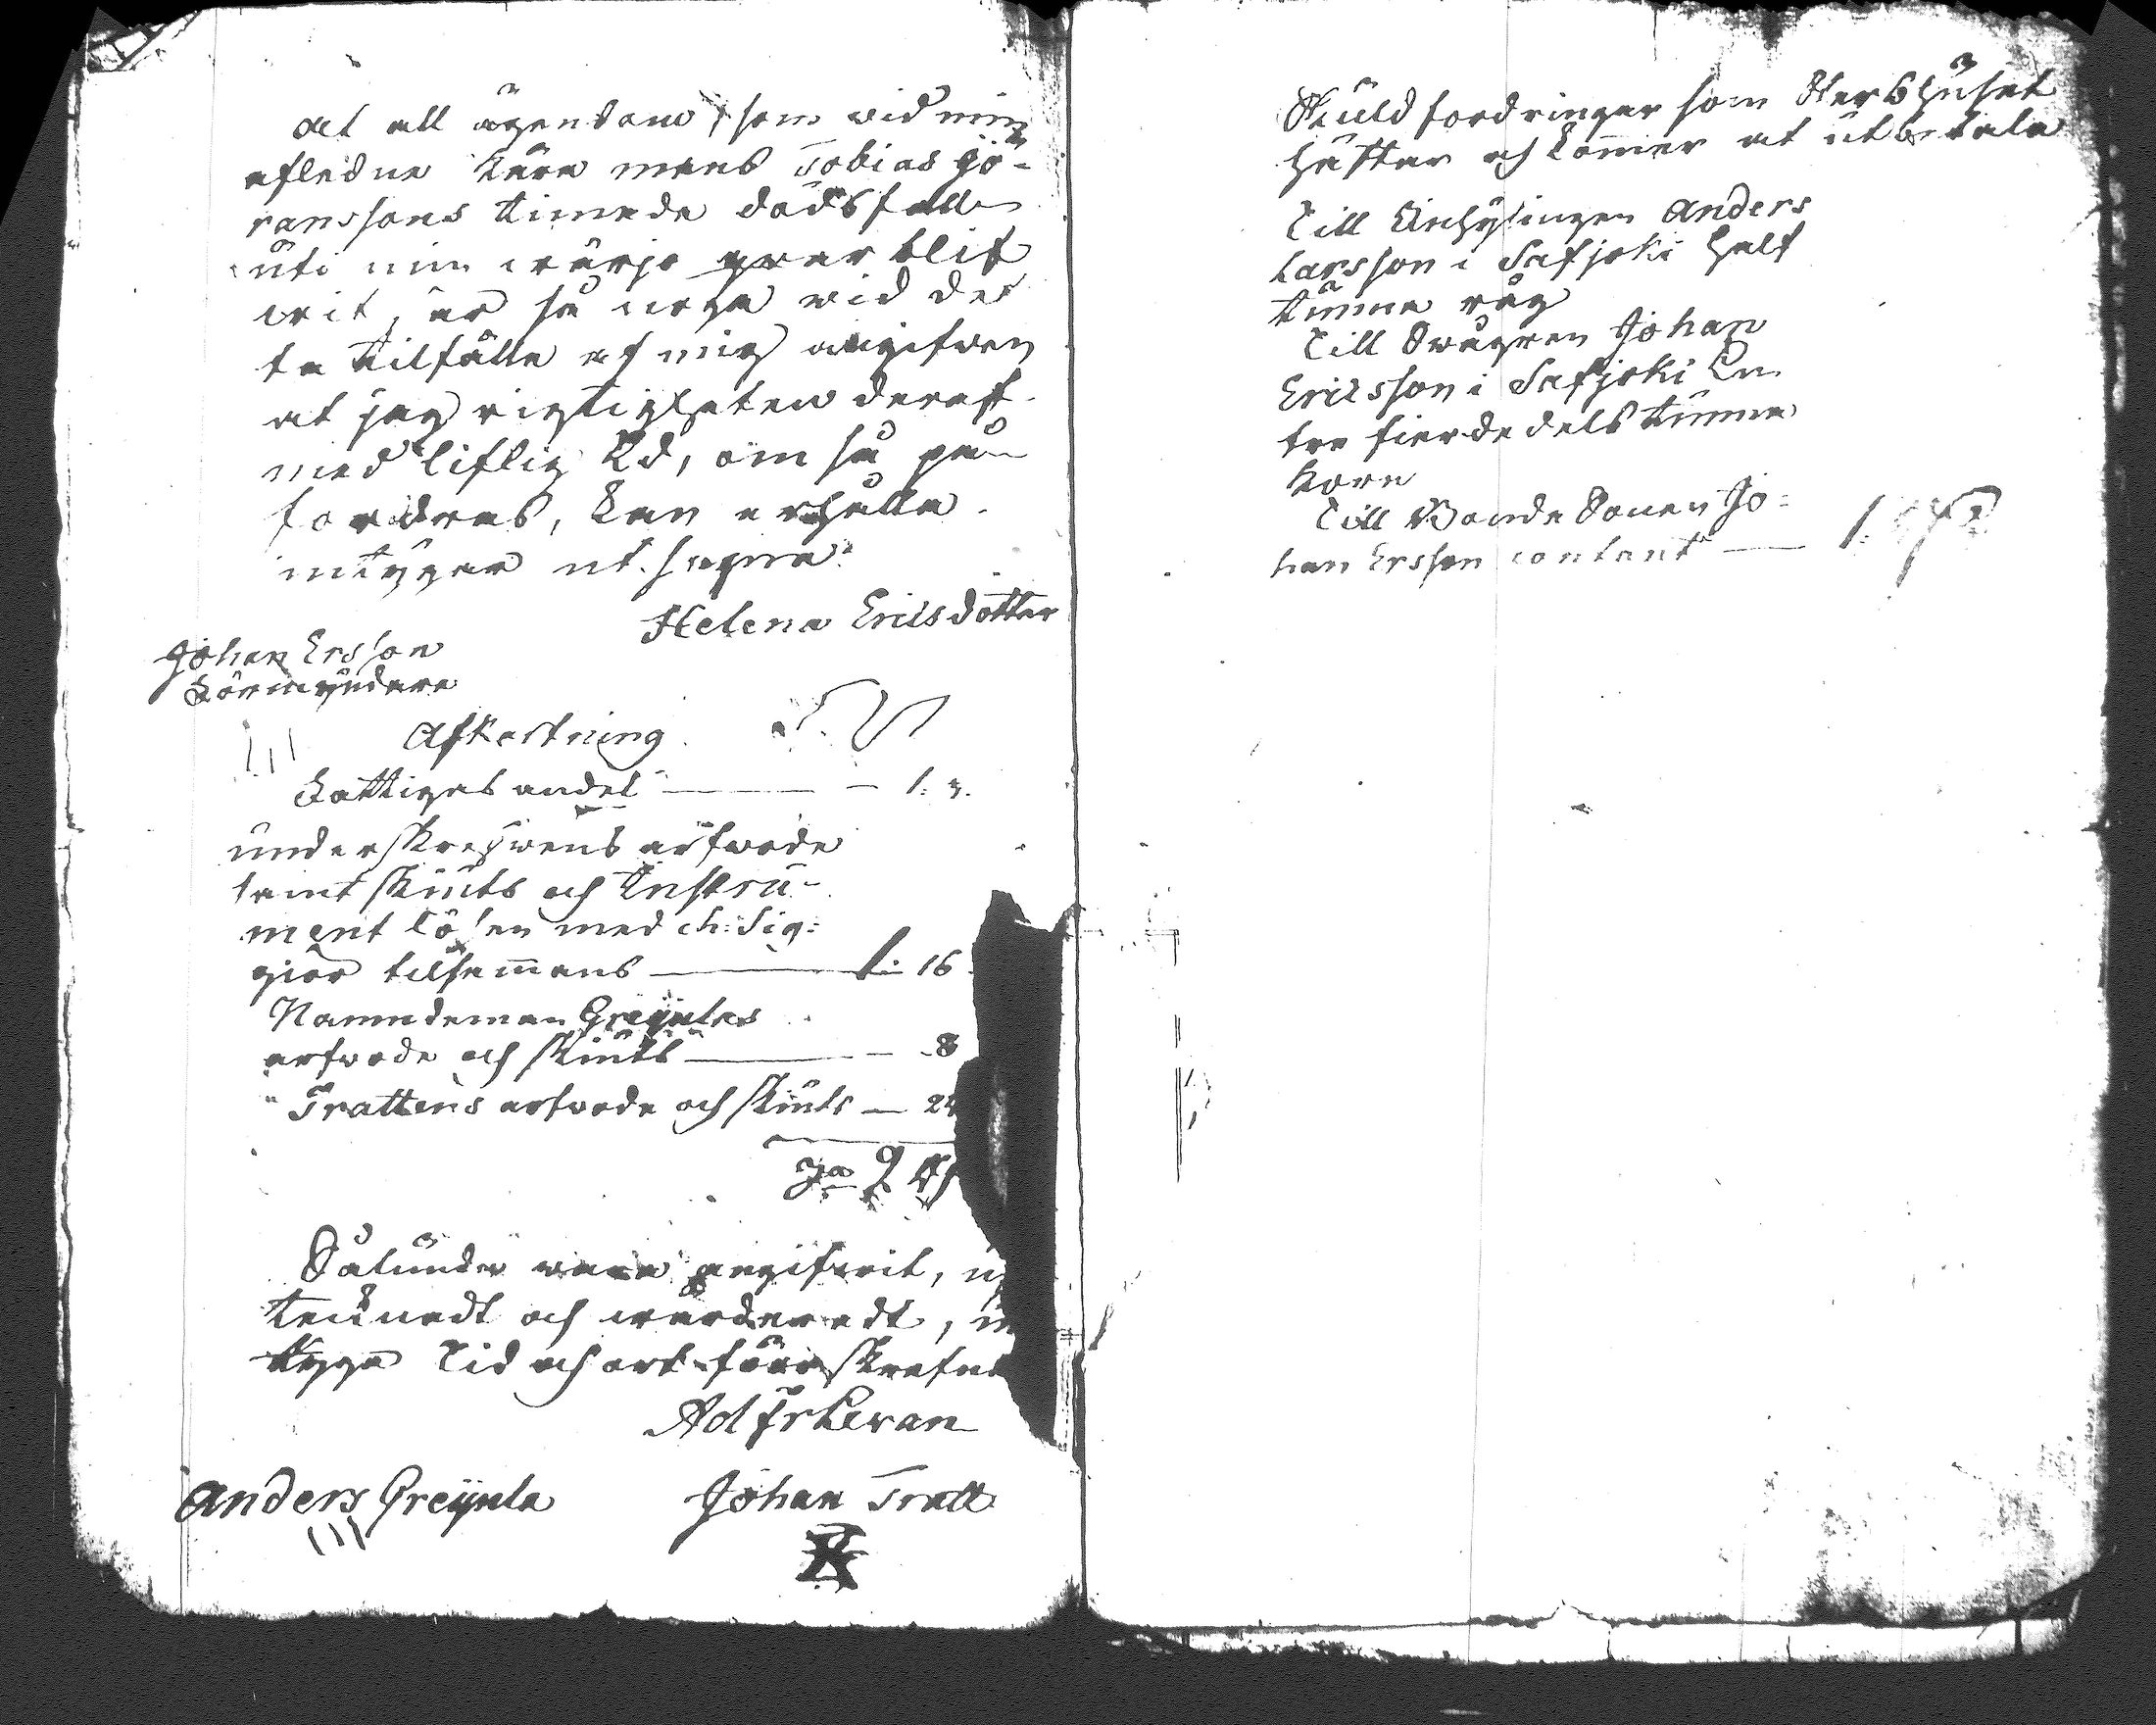 At all ägendom, som wid min
afledne kära mans Tobias Jö-
ranssons timade dödsfall
uti min wärjo qwar blif
wit, är så noga wid det
ta tilfälle af mig angifwen
at jag rigtigheten deraf
med liflig Ed, om så på
fordras, kan erhålla.
intygar ut. supra.
Helena Ericsdotter
Johan Ersson
Förmyndare
Afkortning
Fattigas andel — 1: 3.
underskrefwens arfwode
samt skiuts och Instru-
ment lösen med ch: Sig:
giör tilsammans — 1: 16
Nämndeman Greijulas
arfwode och skiuts — 8
Trattens arfwode och skiuts — 24
Sålunda wara angifwit, up
tecknadt och wärderadt, in
tyga Tid och ort förr skrefne
Anders Greijula
Johan Tratt
Skuld fordringar som Sterbhuset
häftar och kommer at utbetala
Till Inhysingen Anders
Larsson i Safjoki half
tunna råg
Till Swågren Johan
Ericsson i Safjoki En
tre fierdedels tunna
korn
Till Bonde Sonen Jo-
han Ersson contant — 1: